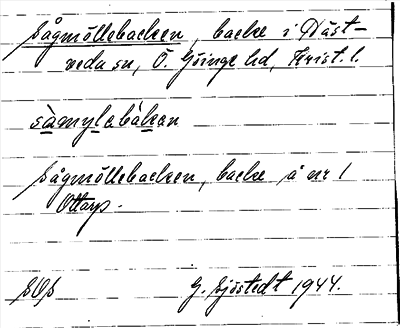 Sågmöllebacken, backe i Näst-
veda sn, Ö. Göinge hd, Krist. l.
sàmylebákan
Sågmöllebacken, backe å nr 1
Ottarp.
SOS G. Sjöstedt 1944.